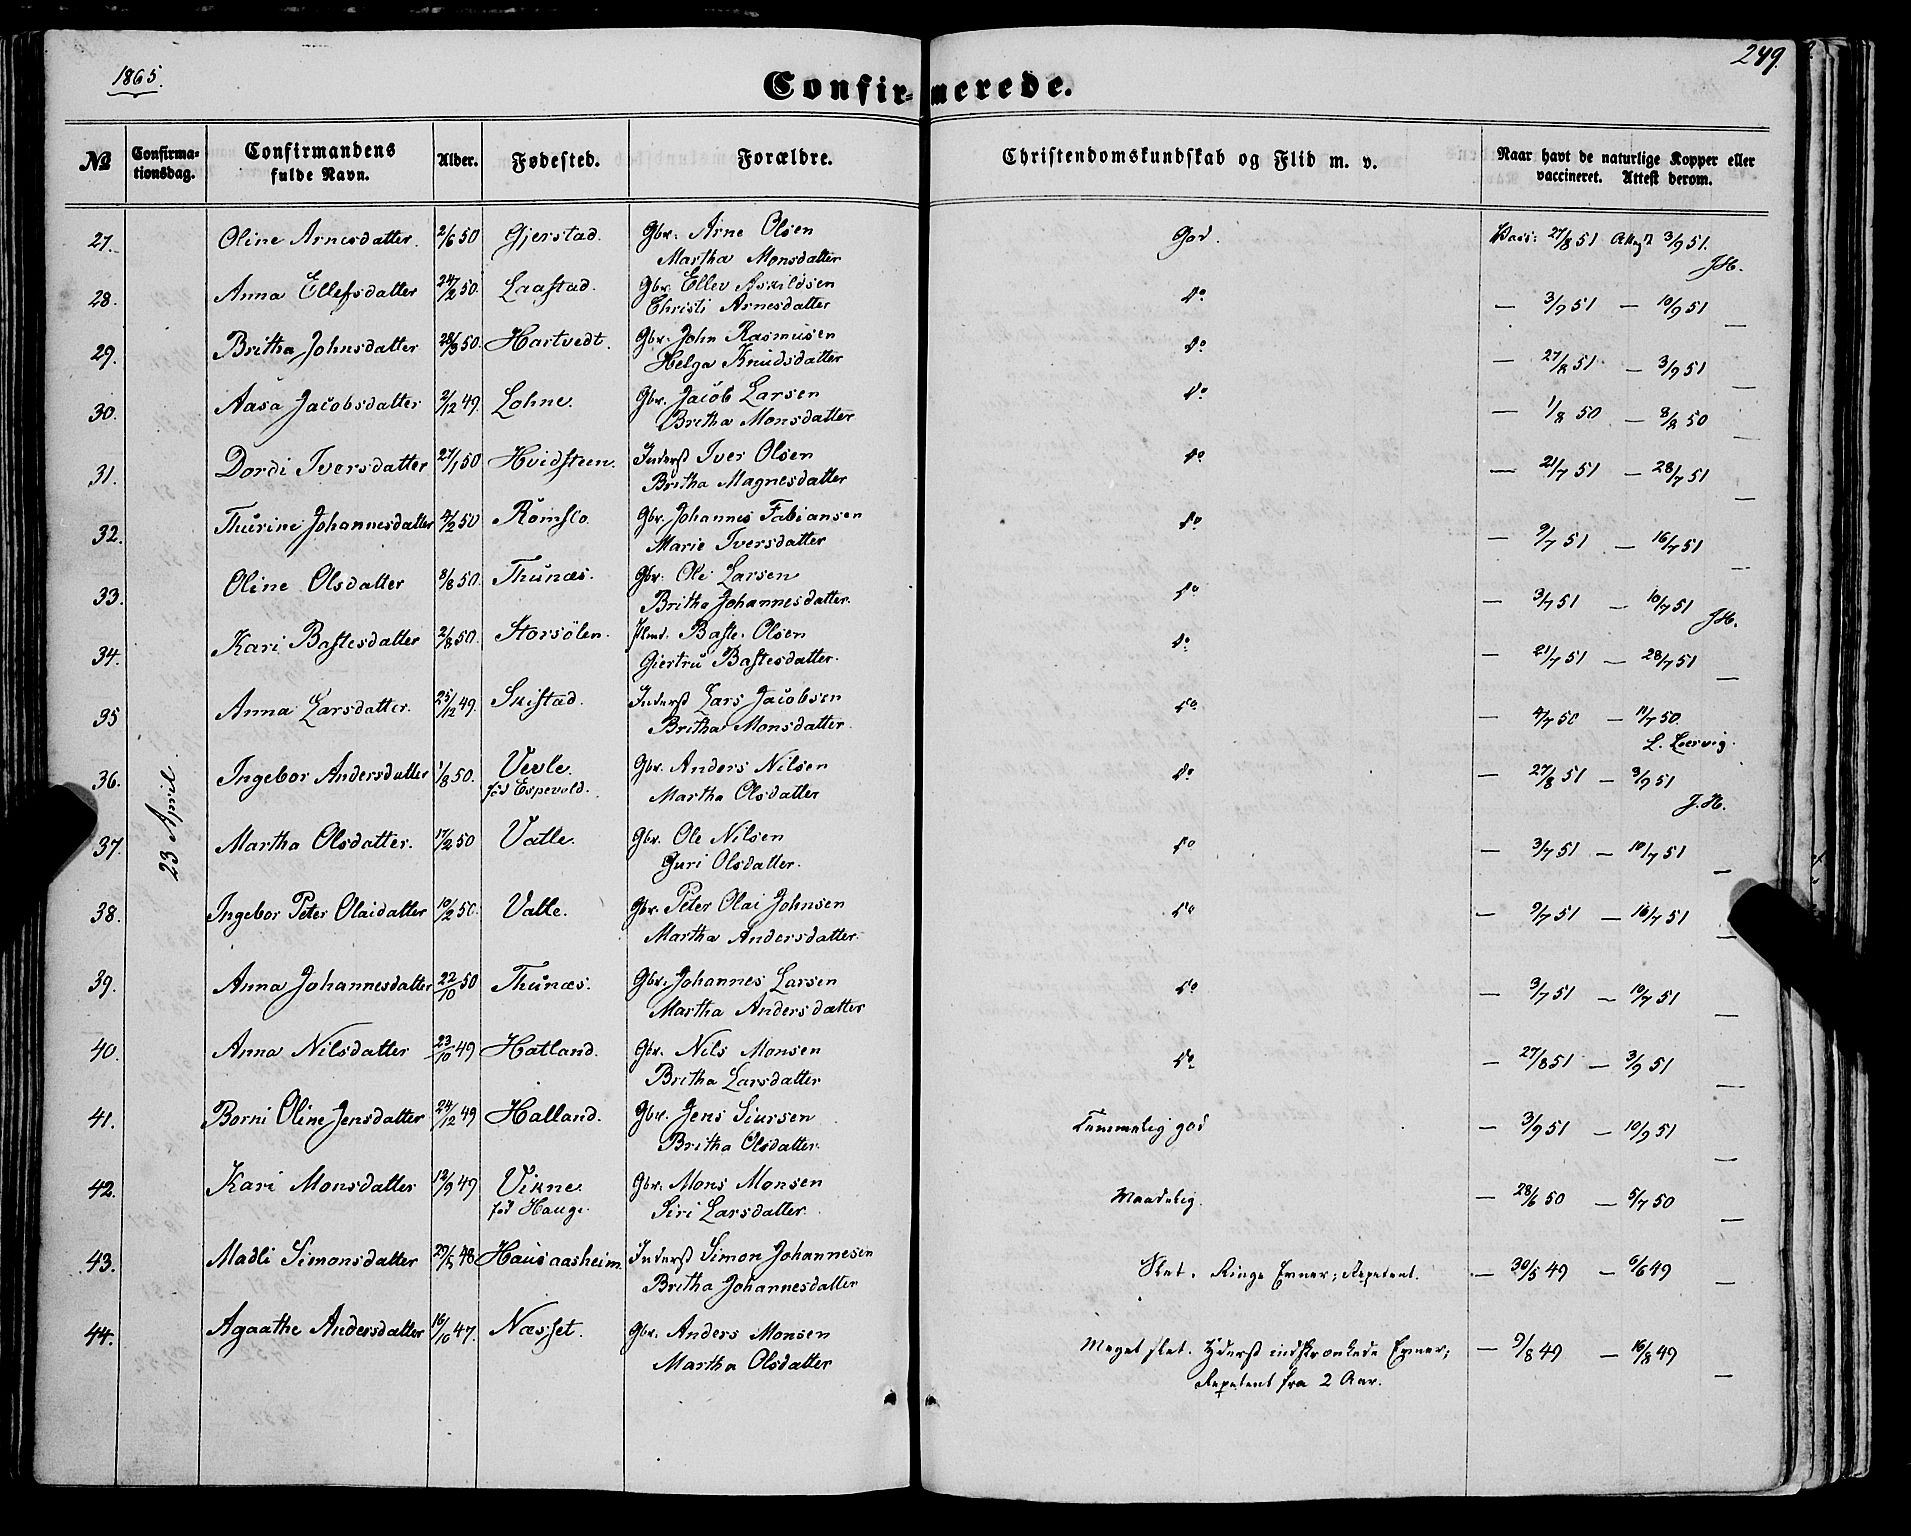 1865.
249.
Confirmerede.
No Confirmationsdag. Confirmandens fulde Navn. Alder. Fødested. Forældre. Christendomskundskab og Flid m. v. Naar havt de naturlige Kopper eller vaccineret. Attest derom.
23 April.
27. Oline Arnesdatter. 2/6 50 Gjerstad. Gbr. Arne Olsen God. Vacc: 27/8 51 Attest 3/9 51.
Martha Monsdatter J.H.
28. Anna Ellefsdatter 24/2 50 Laastad. Gbr. Ellev Askildsen Do — 3/9 51 — 10/9 51
Christi Arnesdatter —
29. Britha Johnsdatter 28/3 50. Hartvedt. Gbr. John Rasmusen Do — 27/8 51 — 3/9 51
Helga Knudsdatter —
30. Aasa Jacobsdatter 2/12 49. Lohne. Gbr. Jacob Larsen Do — 1/8 50 — 8/8 50
Britha Monsdatter —
31. Dordi Iversdatter 27/1 50 Hvidsteen. Inderst Iver Olsen Do — 21/7 51 — 28/7 51
Britha Magnesdatter —
32. Thurine Johannesdatter 4/2 50 Romslo. Gbr. Johannes Fabiansen Do — 9/7 51 — 16/7 51
Marie Iversdatter —
33. Oline Olsdatter 8/8 50. Thunæs. Gbr. Ole Larsen Do — 3/7 51 — 10/7 51
Britha Johannesdatter. J.H.
34. Kari Bastesdatter 2/8 50. Storsölen. Baste Olsen Do — 21/7 51 — 28/7 51
Giertru Bastesdatter. —
35 Anna Larsdatter. 25/12 49. Skistad. Inderst Lars Jacobsen Do — 4/7 50 — 11/7 50.
Britha Monsdatter. L. Lervig.
36. Ingebor Andersdatter 1/8 50. Vevle. Gbr. Anders Nilsen Do — 27/8 51 — 3/9 51
fød Espevold. Martha Olsdatter J.H.
37. Martha Olsdatter. 17/2 50 Valle. Gbr. Ole Nilsen Do — 3/7 51 — 10/7 51
Guri Olsdatter. —
38. Ingebor Peter Olaidatter 10/2 50. Valle. Gbr. Peter Olai Johnsen Do — 9/7 51 — 16/7 51
Martha Andersdatter. —
39. Anna Johannesdatter 22/10 50 Thunæs. Gbr. Johannes Larsen Do — 3/7 51 — 10/7 51
Martha Andersdatter —
40. Anna Nilsdatter 23/10 49 Hatland. Gbr. Nils Monsen Do — 27/8 51 — 3/9 51
Britha Larsdatter —
41. Borni Oline Jensdatter 24/12 49 Halland. Gbr. Jens Siursen Temmelig god — 3/9 51 — 10/9 51
Britha Olsdatter. —
42. Kari Monsdatter 12/9 49 Vikne. Gbr. Mons Monsen Maadelig. — 28/6 50 — 5/7 50
fød Hauge. Siri Larsdatter. —
43. Madli Simonsdatter 29/5 48 Hausaasheim. Inderst Simon Johannesen Slet. Ringe Evner; Repetent. — 30/5 49 — 6/6 49
Britha Johannesdatter —
44. Agaathe Andersdatter 16/10 47. Næsset. Gbr. Anders Monsen Meget slet. Yderst indskrænkede Evner; — 9/8 49 — 16/8 49
Martha Olsdatter Repetent fra 2 Aar. —